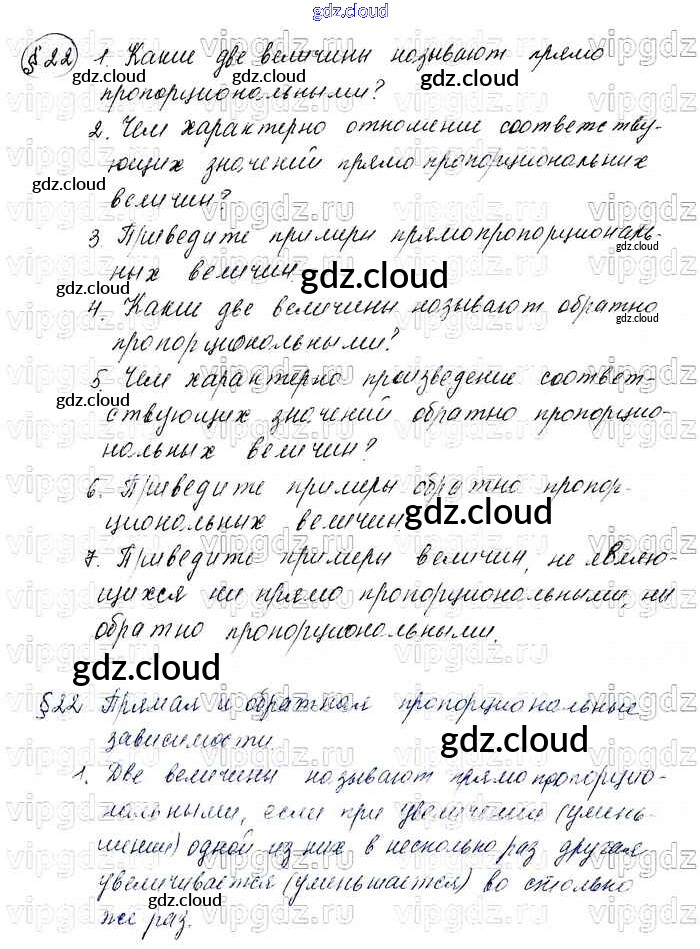 gdz.cloud
§ 22 1. Какие две величины называют прямо
пропорциональными?
2. Чем характерно отношение соответству-
ющих значений прямо пропорциональных
величин?
3. Приведите примеры прямо пропорциональ-
ных величин.
4. Какие две величины называют обратно
пропорциональными?
5. Чем характерно произведение соответ-
ствующих значений обратно пропорцио-
нальных величин?
6. Приведите примеры обратно пропор-
циональных величин.
7. Приведите примеры величин, не являю-
щихся ни прямо пропорциональными, ни
обратно пропорциональными.
gdz.cloud
§22 Прямая и обратная пропорциональные
зависимости
1. Две величины называют прямо пропорцио-
нальными, если при увеличении (умень-
шении) одной из них в несколько раз другая
увеличивается (уменьшается) во столько
же раз.